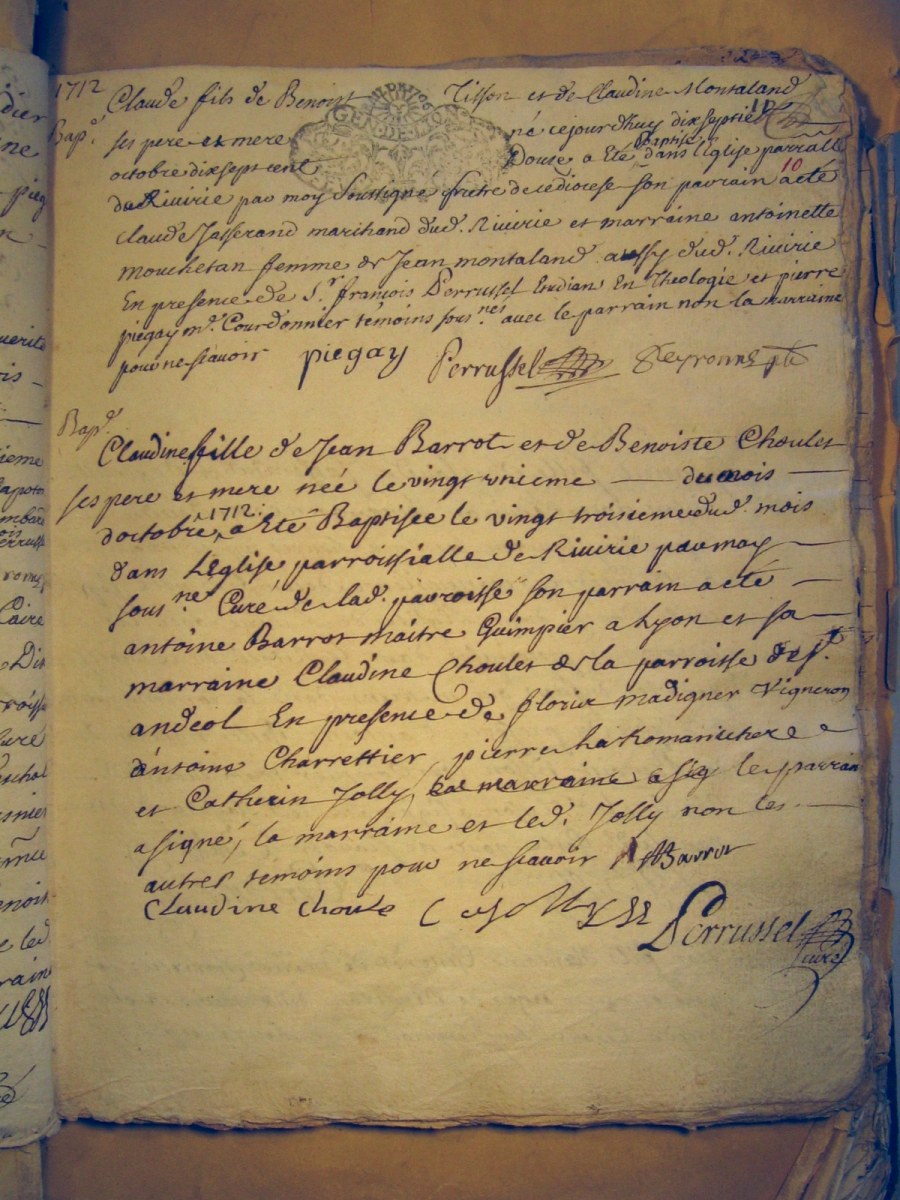 1712
Bap.e
Claude fils de Benoist Tisson et de Claudine Montaland
ses pere et mere né cejourdhuy dixseptie 10
octobre dixsept cent Douze a Eté Baptisé dans Leglise parralle
10
du Rivirie par moy Soussigné pretre de ce diocese son parrain a eté
Claude Jasserand marchand dud. Rivirie et marraine antoinette
mouchetan femme de Jean montaland aussy dud. Rivirie
En presence de S.r françois Perrussel Etudian En Theologie et pierre
piegay m.e Courdonnier temoins sous.nés avec le parrain non la marraine
pour ne sçavoir piegay Perrussel Peyronnet ptre
Bap.e
Claudine fille de Jean Barrot et de Benoiste Choulet
ses pere et mere née le vingt unieme du mois
doctobre 1712. a Eté Baptisée le vingt troisieme dud. mois
dans LEglise parroissialle de Rivirie par moy
sous.né Curé de lad. parroisse son parrain a eté
antoine Barrot maitre Guimpier a Lyon et sa
marraine Claudine Choulet de la parroisse de s.t
andeol En presence de fleurix madigner Vigneron
d'antoine Charrettier, pierre La Romarichere
et Catherin Jolly, marraine a sig le parrain
a signé, la marraine et led. Jolly non les
autres temoins pour ne scavoir ABarrot
Claudine Choule C Jolly
Perrussel
Curé